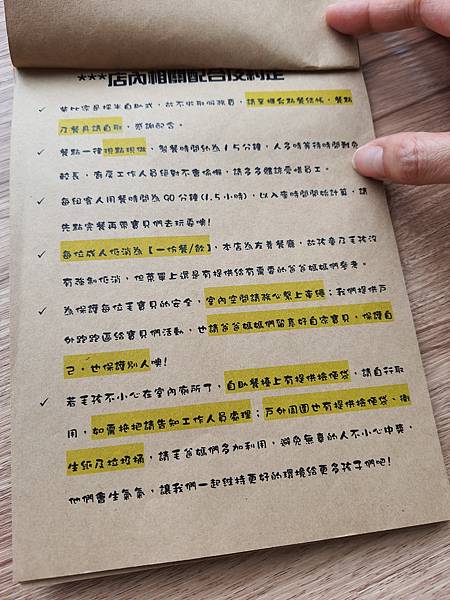 ***店內相關配合及約定
✓ 柴比客是採半自助式，故不收取服務費，請至櫃台點餐結帳，餐點
及餐具請自取，感謝配合。
✓ 餐點一律現點現做，製餐時間約為15分鐘，人多時等待時間難免
較長，有度工作人員絕對不會偷懶，請多多體諒愛唷員工。
✓ 每組客人用餐時間為90分鐘(1.5小時)，以入座時間開始計算，請
先點完餐再帶寶貝們去玩耍噢!
✓ 每位成人低消為【一份餐/飲】，本店為友善餐廳，故孩童及毛孩沒
有強制低消，但菜單上還是有提供給有需要的爸爸媽媽們參考。
✓ 為保護每位毛寶貝的安全，室內空間請放心繫上牽繩；我們提供戶
外跑跑區給寶貝們活動，也請爸爸媽媽們留意好自家寶貝，保護自
己，也保護別人噢!
✓ 若毛孩不小心在室內廁所了，自助餐檯上有提供撿便袋，請自行取
用，如需拖把請告知工作人員處理；戶外周圍也有提供撿便袋、衛
生紙及垃圾桶，請毛爸媽們多加利用，避免無辜的人不小心中獎，
他們會生氣氣，讓我們一起維持更好的環境給更多孩子們吧!